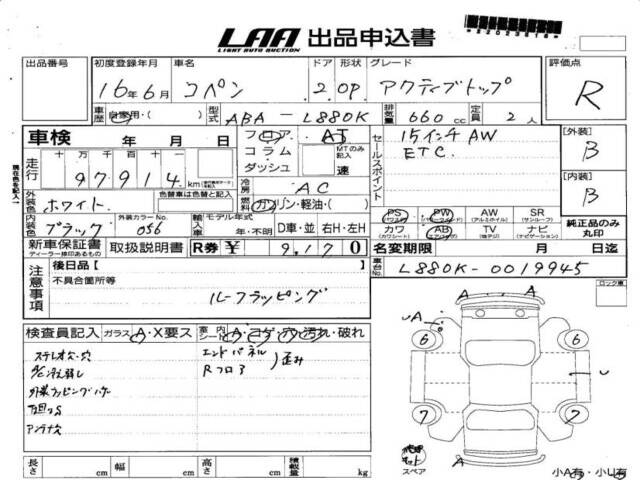 LAA 出品申込書
LIGHT AUTO AUCTION
出品番号 初度登録年月 車名 ドア 形状 グレード 評価点
16年6月 コペン 2 OP アクティブトップ R
車歴 自家用・( ) 型式 ABA-L880K 排気量 660 cc 定員 2人
車検 年 月 日 フロア AT セールスポイント 15インチAW [外装]
コラム MTのみ記入 ETC. B
走行 十 万 千 百 十 一 ダッシュ 速
97914 km
冷房 AC [内装]
外装色 ホワイト 色替車は色替と記入 燃料 ガソリン・軽油・( ) B
内装色 ブラック 外装カラーNo. 056 輸入車 モデル年式 年・不明 D車・並 右H・左H
PS PW AW SR
(パワーステ) (パワーウインド) (アルミホイル) (サンルーフ)
カワ AB TV ナビ
(カワシート) (エアバッグ) (地デジ) (ナビゲーション)
純正品のみ丸印
新車保証書 取扱説明書 R券 ¥ 9,170 名変期限 月 日迄
ディーラー捺印あるもの
車台No. L880K-0019945
現在色を記入
注意事項 後日品[ ]
不具合箇所等
ルーフラッピング
ロック車
検査員記入 ガラス A・X要ス 室内 シール A・コゲ・穴・汚れ・破れ
ステレオ欠・穴 エンドパネル 歪み
Rフロア
アンテナ欠
A A
A
6 6
7 7
A
スペア
長さ cm 幅 cm 高さ cm 積載量 kg
小A有・小U有